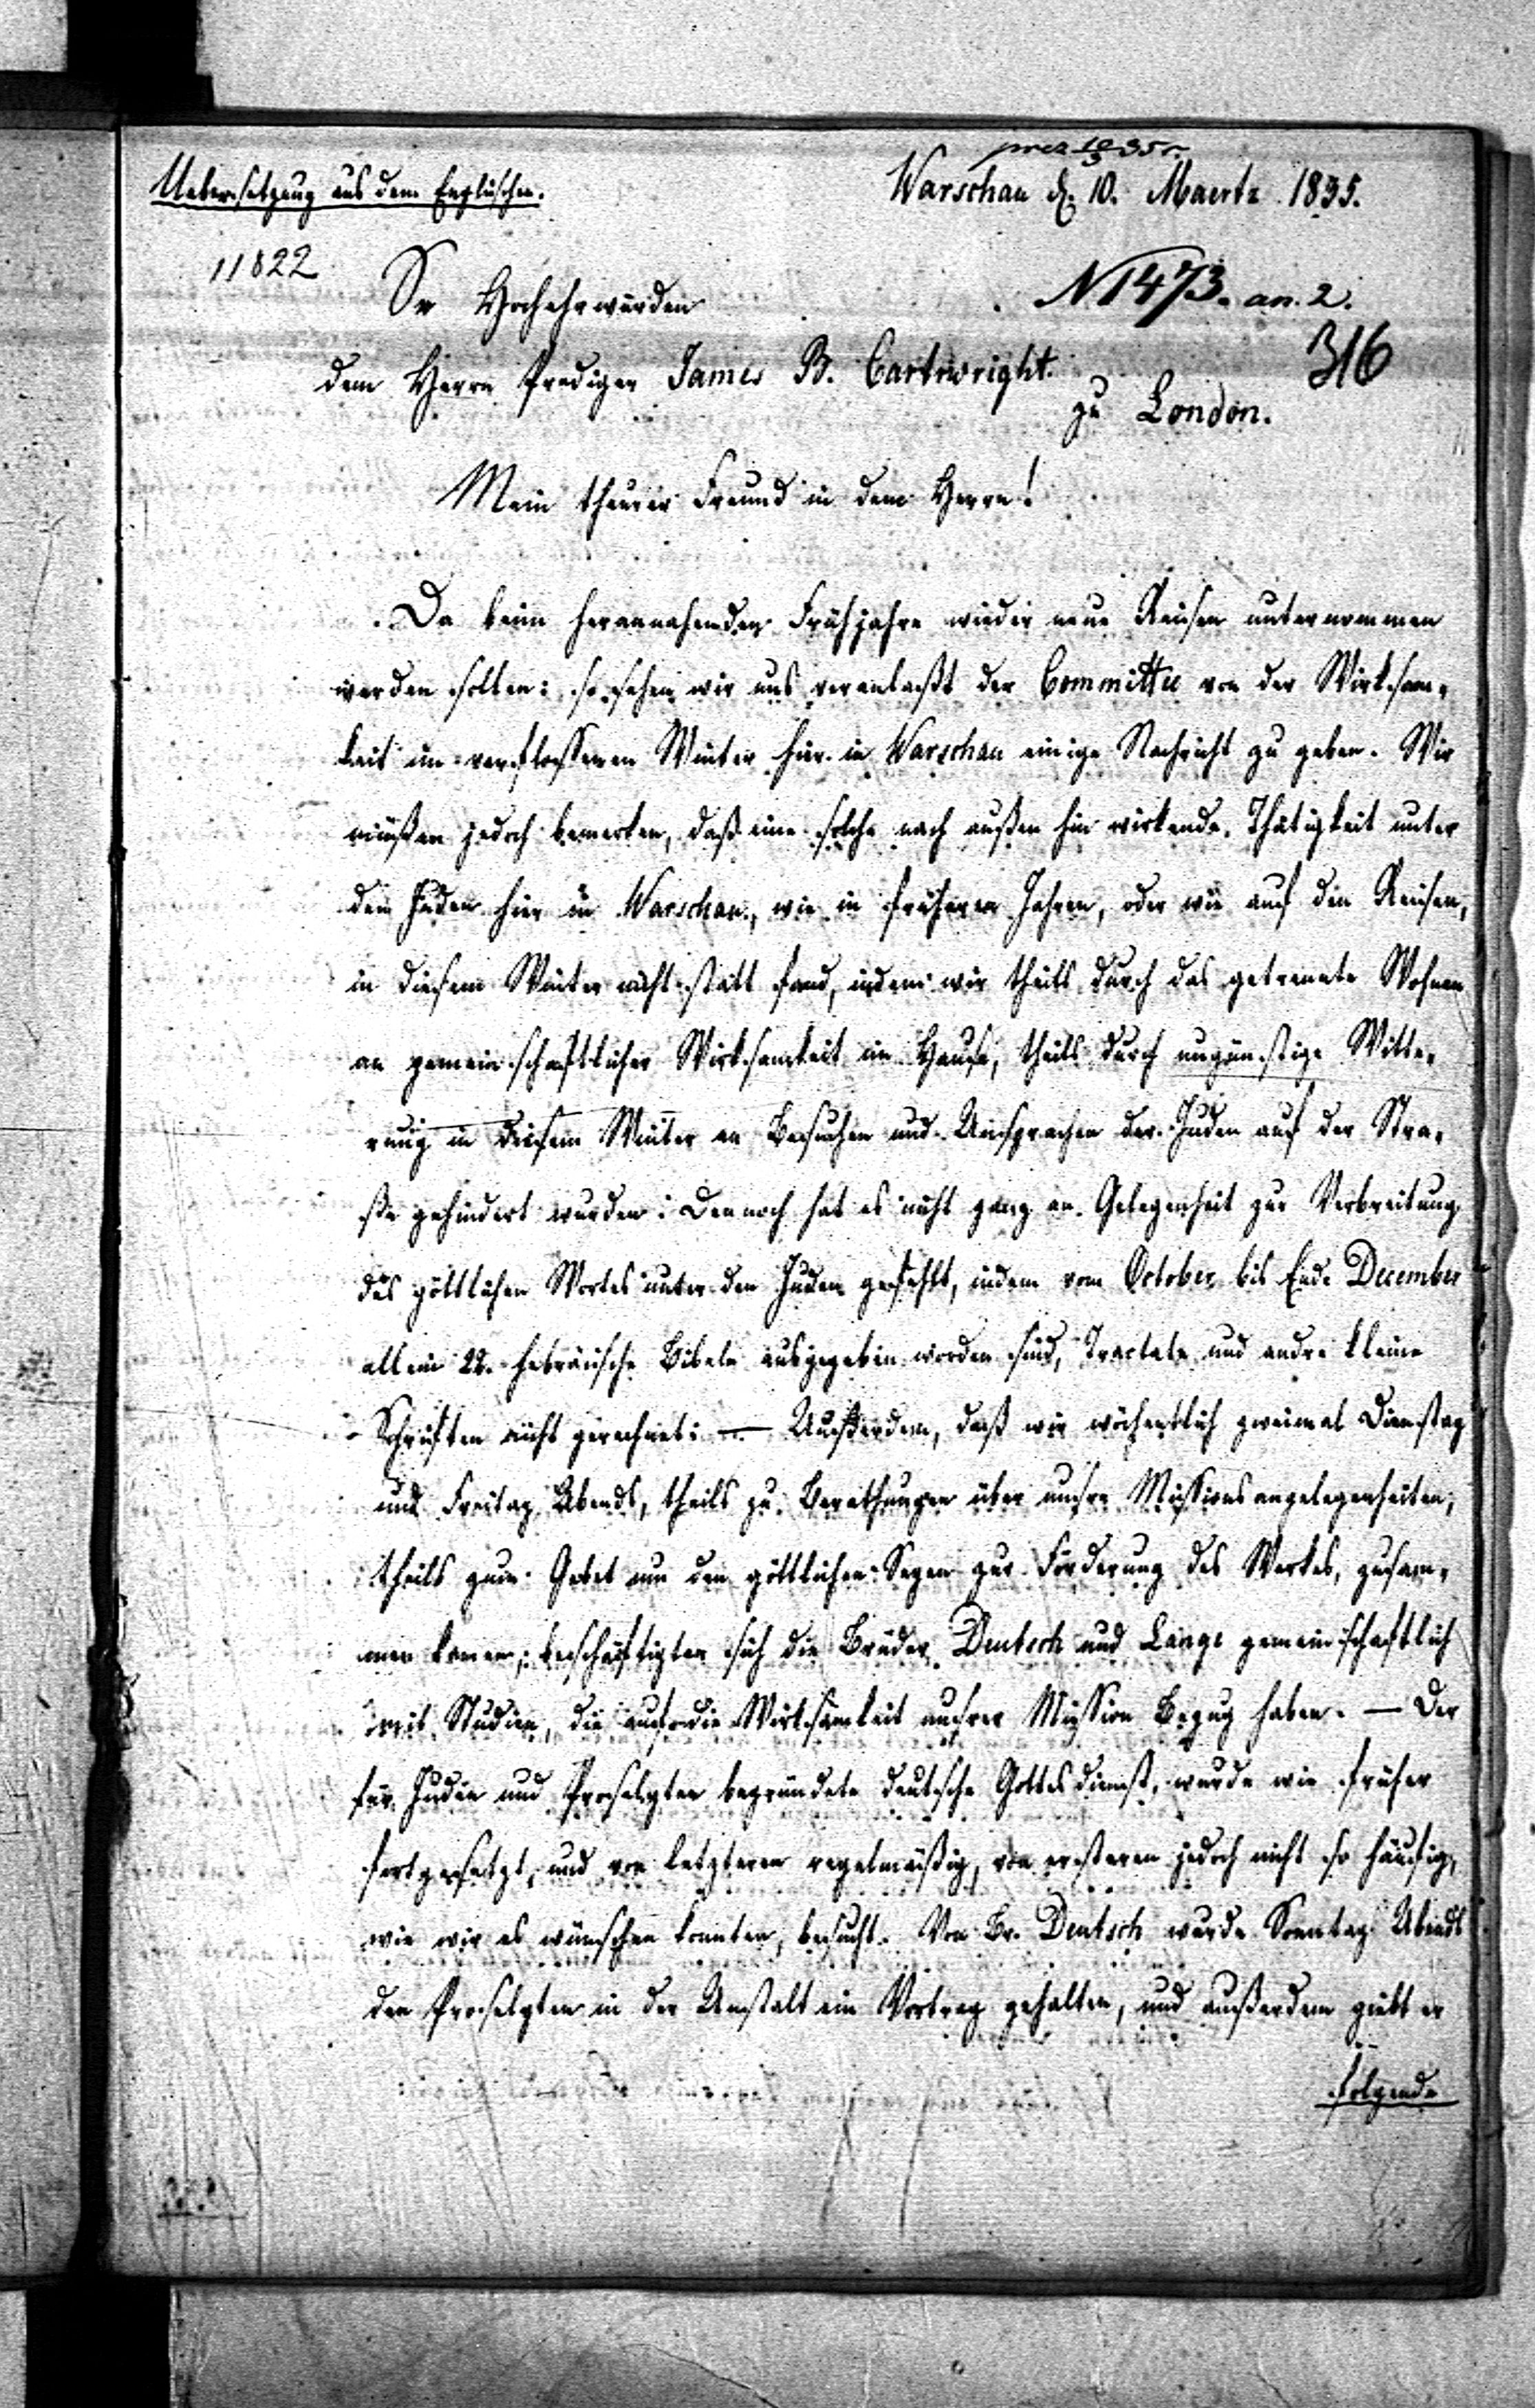 praes 10/3 35 r.
Uebersetzung aus dem Englischen.
Warschau d. 10. Maertz 1835.
11822
Sr Hochehrwürden
N 1473. an. 2.
316
dem Herrn Prediger James B. Cartwright.
zu London.
Mein theurer Freund in dem Herrn!
Da beim herannahenden Frühjahre wieder neue Reisen unternommen
werden sollen: so sehen wir uns veranlaßt der Committee von der Wirksam-
keit im verflossenen Winter hier in Warschau einige Nachricht zu geben. Wir
müßen jedoch bemerken, daß eine solche nach außen hin wirkende Thätigkeit unter
den Juden hier in Warschau, wie in früheren Jahren, oder wie auf den Reisen,
in diesem Winter nicht statt fand, indem wir theils durch das getrennte Wohnen
an gemeinschaftlicher Wirksamkeit im Hause, theils durch ungünstige Witte-
rung in diesem Winter an Besuchen und Ansprachen der Juden auf der Stra-
ße gehindert wurden: Dennoch hat es nicht ganz an Gelegenheit zur Verbreitung
des göttlichen Wortes unter den Juden gefehlt, indem vom October bis Ende December
allein 22. hebräische Bibeln ausgegeben worden sind, Tractate und andre kleine
Schriften nicht gerechnet: — Außerdem, daß wir wöchentlich zweimal Dienstag
und Freitag Abends, theils zu Berathungen über unsre Missionsangelegenheiten,
theils zum Gebet um den göttlichen Segen zur Förderung des Werkes, zusam-
men kamen, beschäftigten sich die Brüder Deutsch und Lange gemeinschaftlich
mit Studien, die auf die Wirksamkeit unsrer Mission Bezug haben. — Der
für Juden und Proselyten begründete deutsche Gottesdienst, wurde wie früher
fortgesetzt, und von letzteren regelmäßig, von ersteren jedoch nicht so häufig,
wie wir es wünschen konnten, besucht. Von Br. Deutsch wurde Sonntag Abends
den Proselyten in der Anstalt ein Vortrag gehalten, und außerdem giebt er
folgende